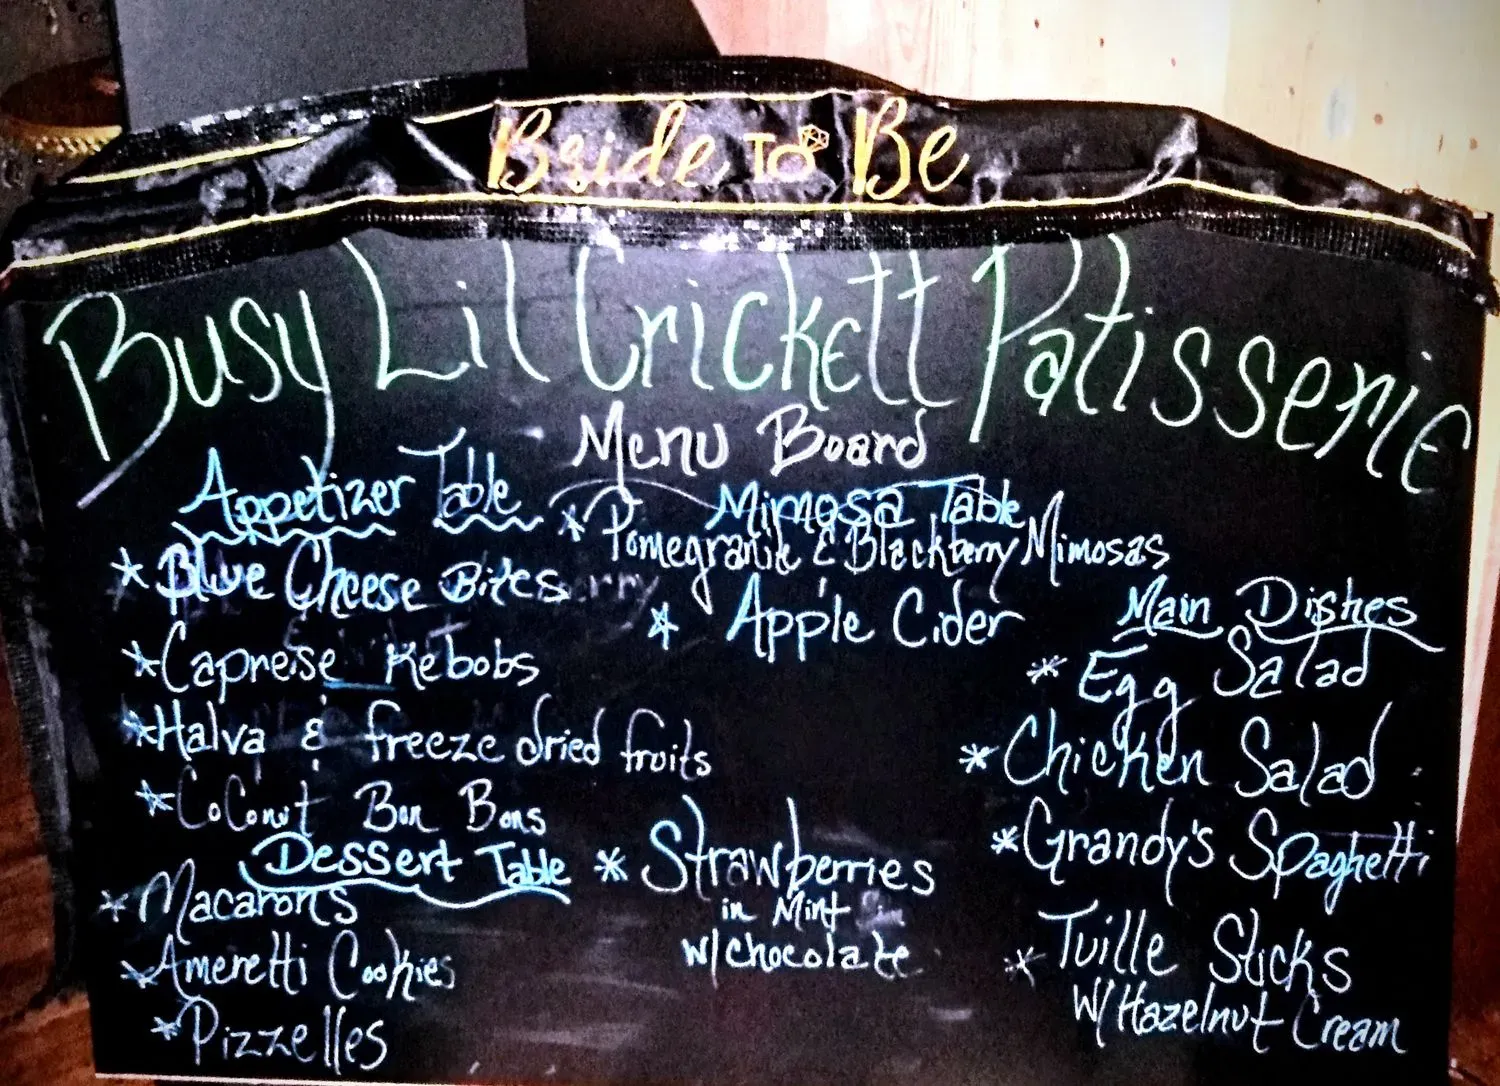 Bride TO Be
Busy Lil Crickett Patisserie
Menu Board
Appetizer Table
* Blue Cheese Bites
* Caprese Kebobs
* Halva & freeze dried fruits
* CoConut Bon Bons
Mimosa Table
* Pomegranite & Blackberry Mimosas
* Apple Cider
Dessert Table
* Macarons
* Ameretti Cookies
* Pizzelles
* Strawberries
in Mint
w/chocolate
Main Dishes
* Egg Salad
* Chicken Salad
* Grandy's Spaghetti
* Tuille Sticks
W/Hazelnut Cream